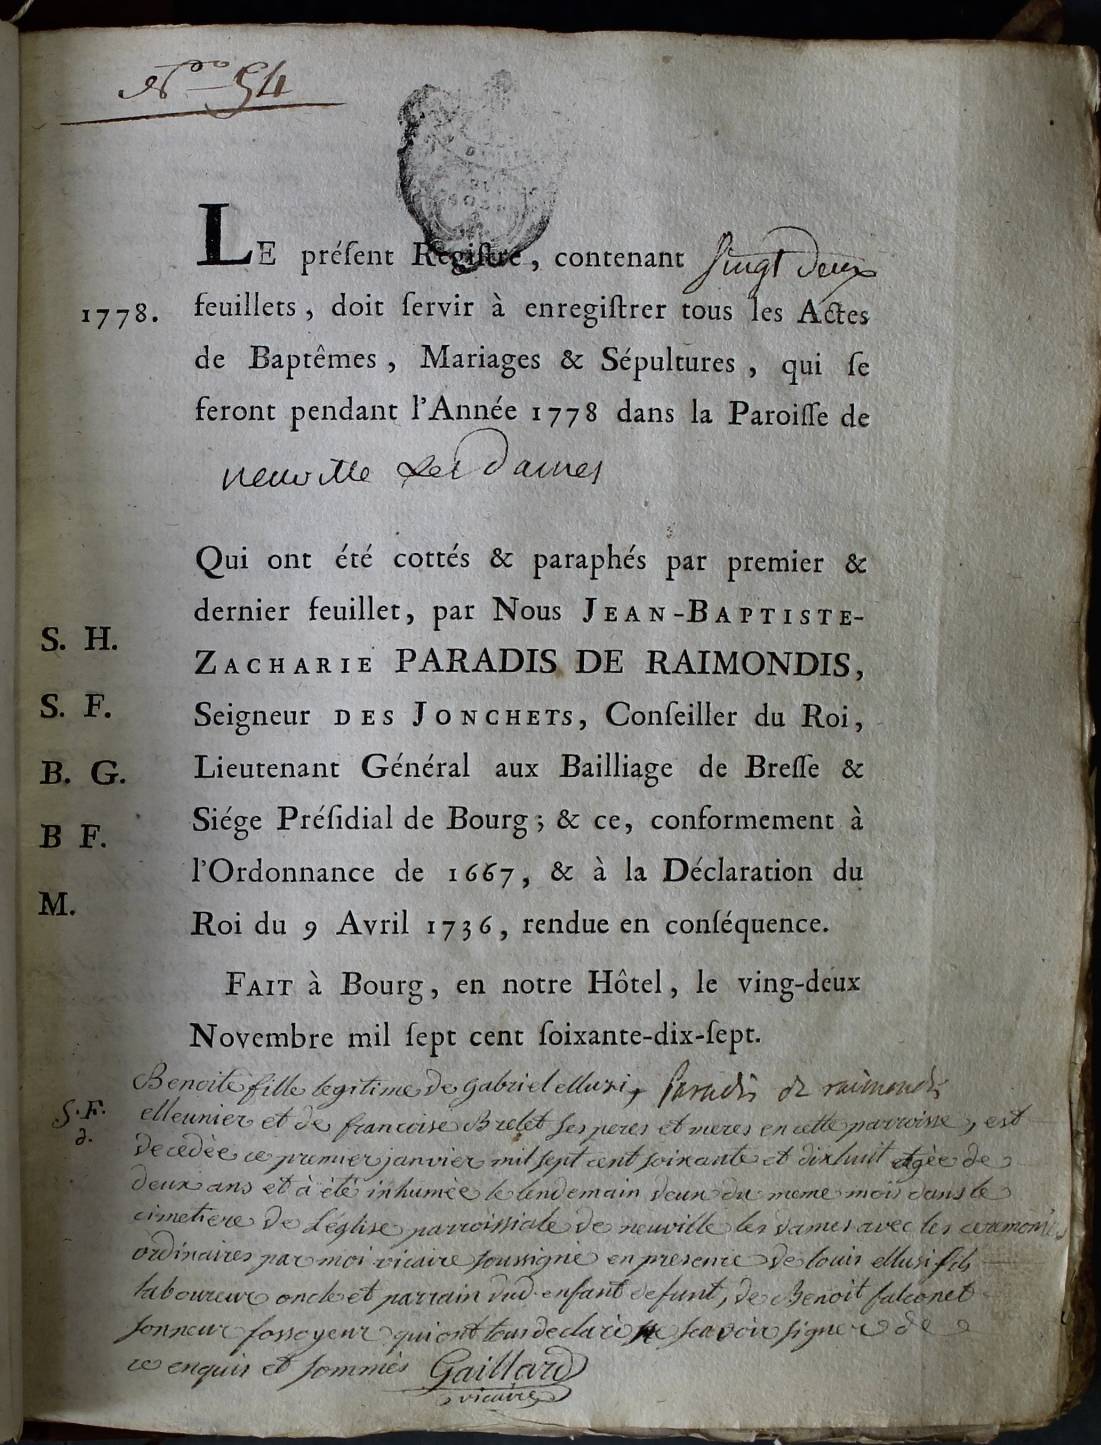 N° 54
LE préſent Regiſtre, contenant vingt deux
1778.
feuillets, doit ſervir à enregiſtrer tous les Actes
de Baptêmes, Mariages & Sépultures, qui ſe
feront pendant l'Année 1778 dans la Paroiſſe de
neuville Les Dames
Qui ont été cottés & paraphés par premier &
dernier feuillet, par Nous JEAN-BAPTISTE-
S. H.
ZACHARIE PARADIS DE RAIMONDIS,
S. F.
Seigneur DES JONCHETS, Conſeiller du Roi,
B. G.
Lieutenant Général aux Bailliage de Breſſe &
Siége Préſidial de Bourg; & ce, conformement à
B F.
l'Ordonnance de 1667, & à la Déclaration du
M.
Roi du 9 Avril 1736, rendue en conſéquence.
FAIT à Bourg, en notre Hôtel, le ving-deux
Novembre mil ſept cent ſoixante-dix-ſept.
Benoite fille legitime de gabriel Muzi, Paradis de raimondis
S. F.
d.
Meunier et de francoise Brelet ses peres et meres en cette parroisse, est
decedée ce premier janvier mil sept cent soixante et dixhuit agée de
deux ans et a été inhumée le lendemain deux du meme mois dans le
cimetiere de L'église parroissiale de neuville les dames avec les ceremonies
ordinaires par moi vicaire soussigné en presence de louis Muzi fils
laboureur oncle et parrain dud. enfant defunt, de Benoit falconet
sonneur fossoyeur qui ont tous declaré ne scavoir signer de
ce enquis et sommés Gaillard
vicaire